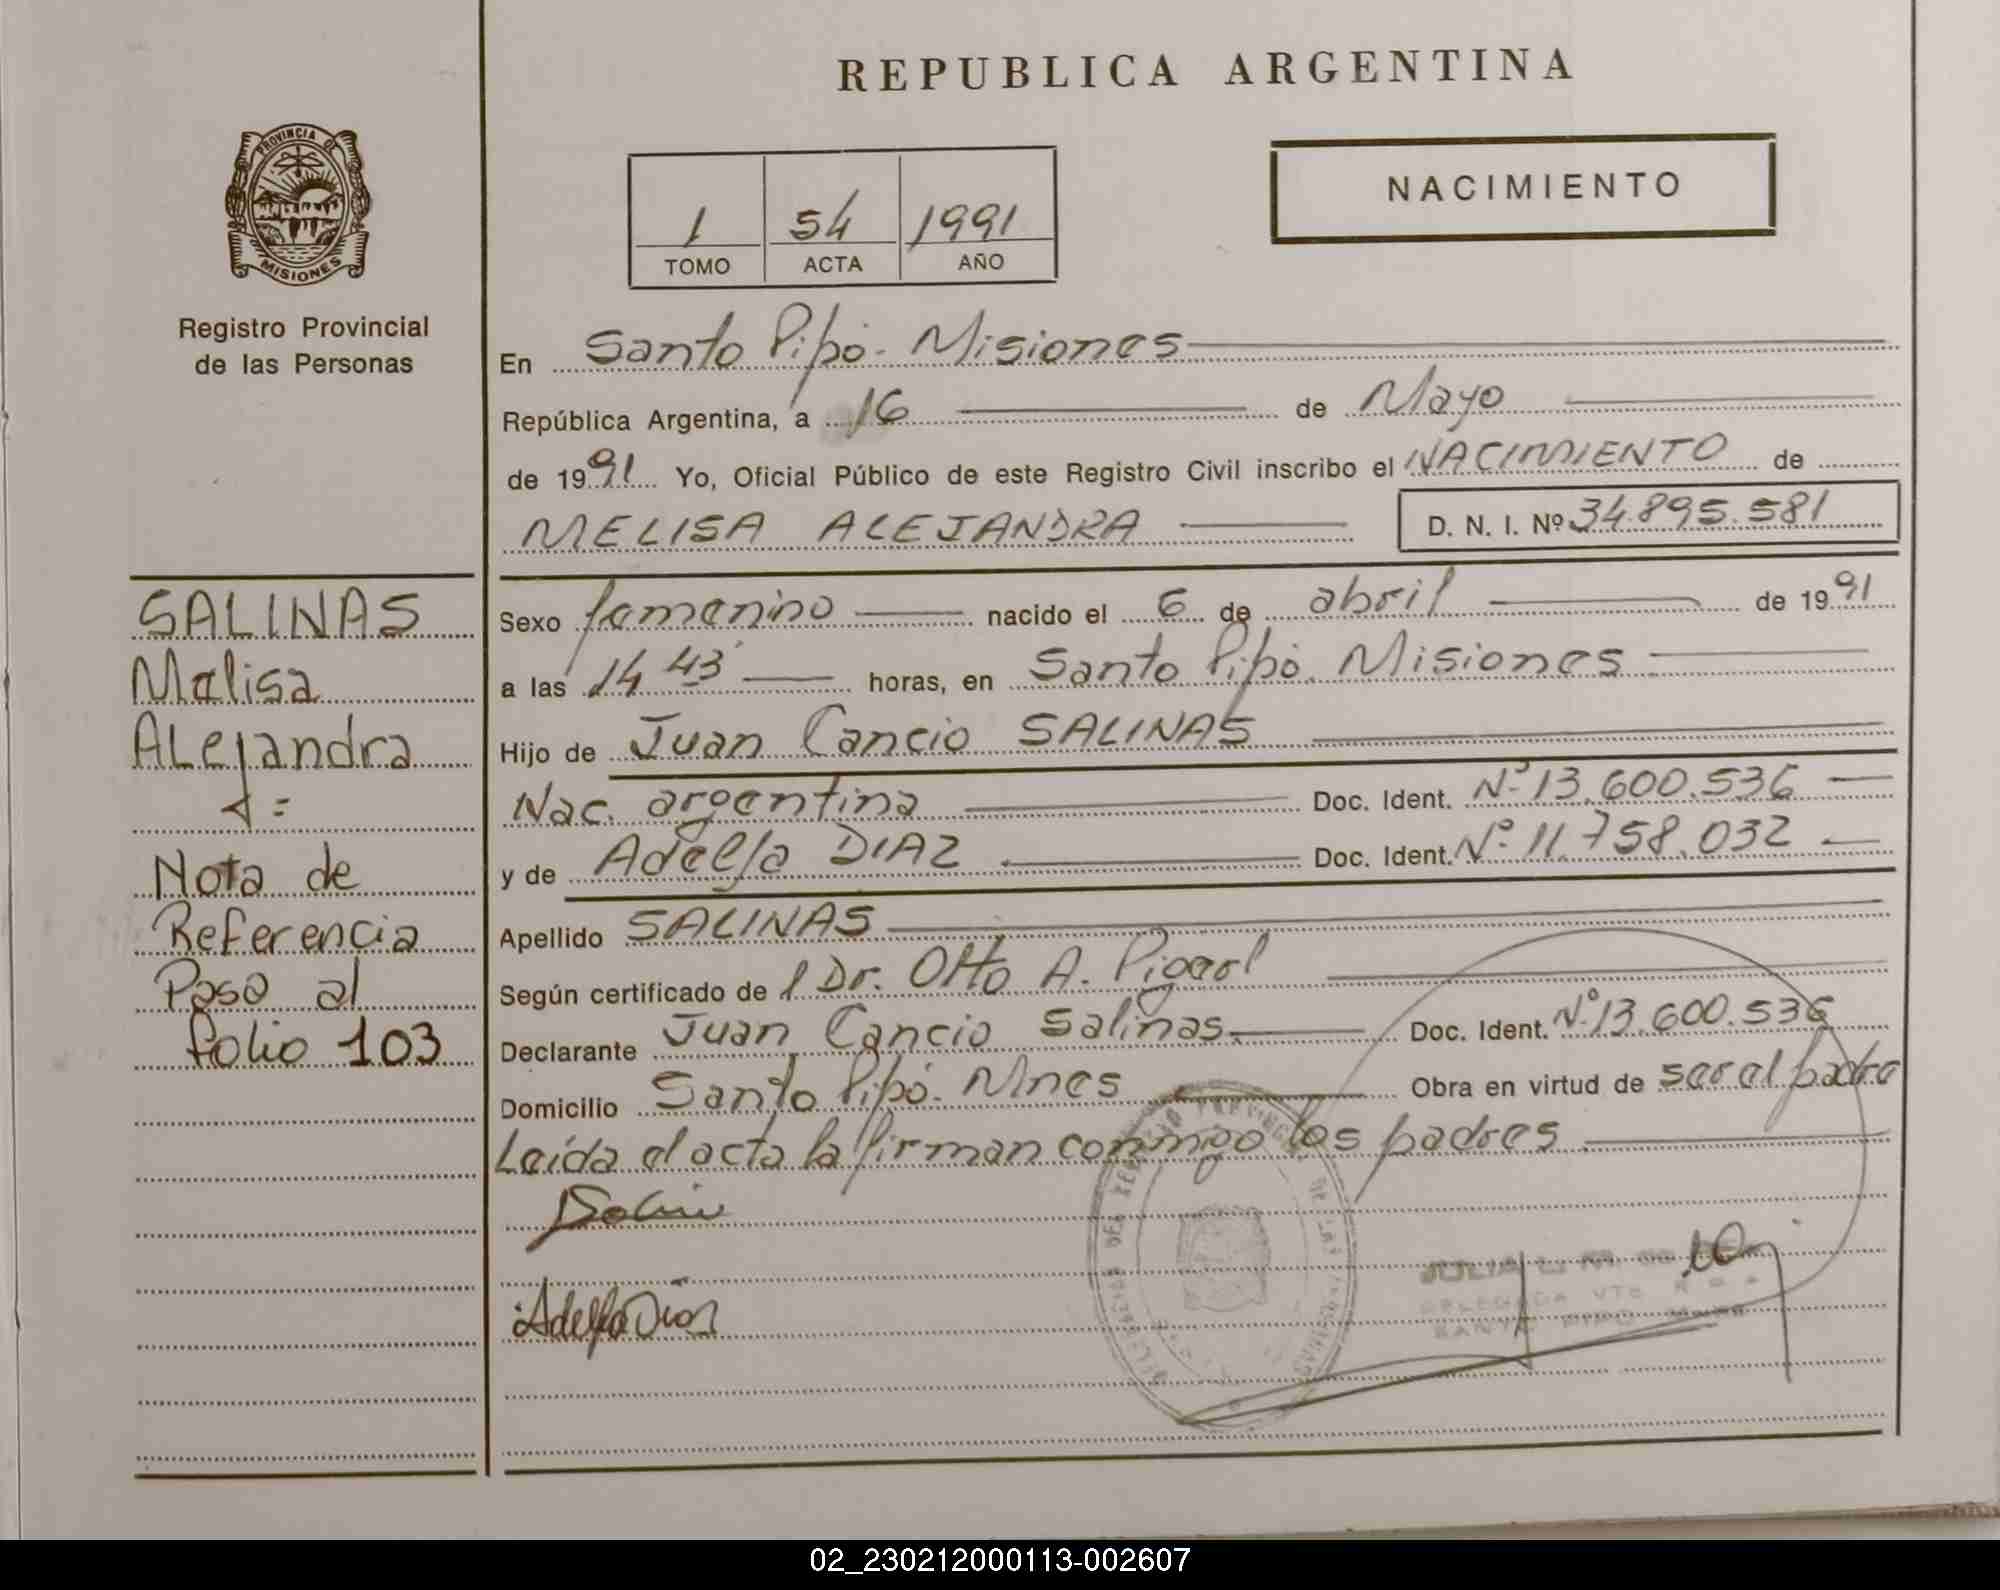 REPUBLICA ARGENTINA
PROVINCIA DE
MISIONES
Registro Provincial
de las Personas
1 54 1991
TOMO ACTA AÑO
NACIMIENTO
En Santo Pipó - Misiones
República Argentina, a 16 de Mayo
de 1991 Yo, Oficial Público de este Registro Civil inscribo el NACIMIENTO de
MELISA ALEJANDRA D. N. I. Nº 34.895.581
Sexo femenino nacido el 6 de abril de 1991
a las 14 43 horas, en Santo Pipó. Misiones
Hijo de Juan Cancio SALINAS
Nac. argentina Doc. Ident. Nº 13.600.536
y de Adelfa DIAZ Doc. Ident. Nº 11.758.032
Apellido SALINAS
Según certificado de l Dr. Otto A.
Declarante Juan Cancio Salinas. Doc. Ident. Nº 13.600.536
Domicilio Santo Pipó. Mnes Obra en virtud de ser el padre
Leída el acta la firman conmigo los padres
Adelfa Dias
JULIA L. M.
DELEGADA
SANTO PIPO
SALINAS
Melisa
ALejandra
Nota de
Referencia
Pasa al
folio 103
02_230212000113-002607